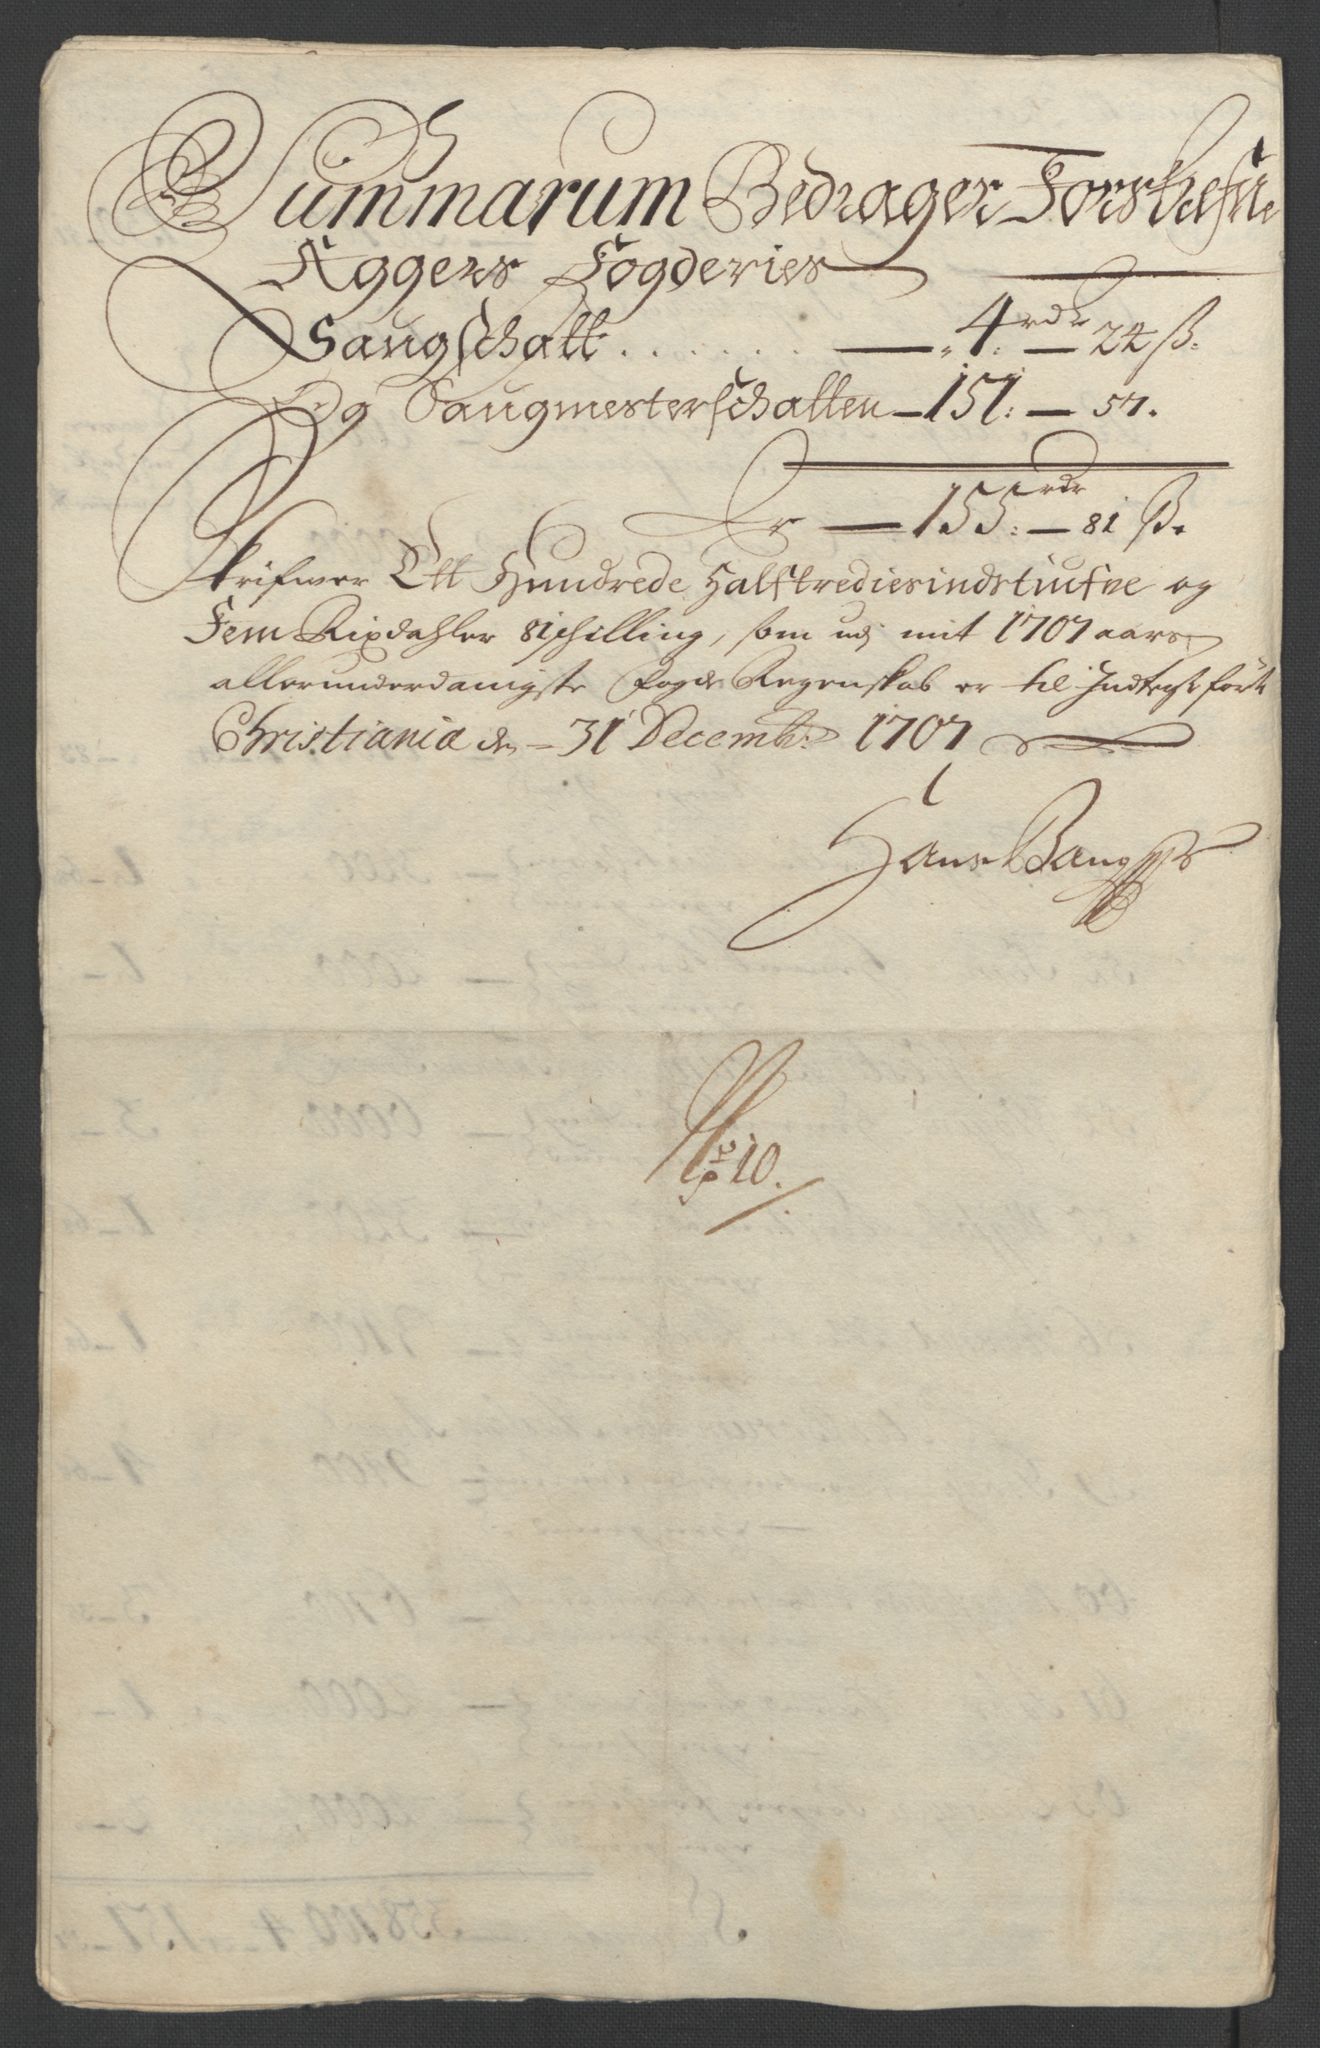 Summarum Bedrager Forskrefne
Aggers Fogderies
Saugschatt . . . . . . — 4: rdr — 24 ß:
Og Saugmesterschatten — 151: — 57.
Er — 155: rdr — 81 ß.
Skrifwer Ett Hundrede Halftrediesindstiufve og
Fem Rixdahler 81 schilling, som udj mit 1707 aars
allerunderdanigste Fogde Regenskab er til Indtegt førte
Christiania den 31 Decemb: 1707
Hans Bang
No 10.